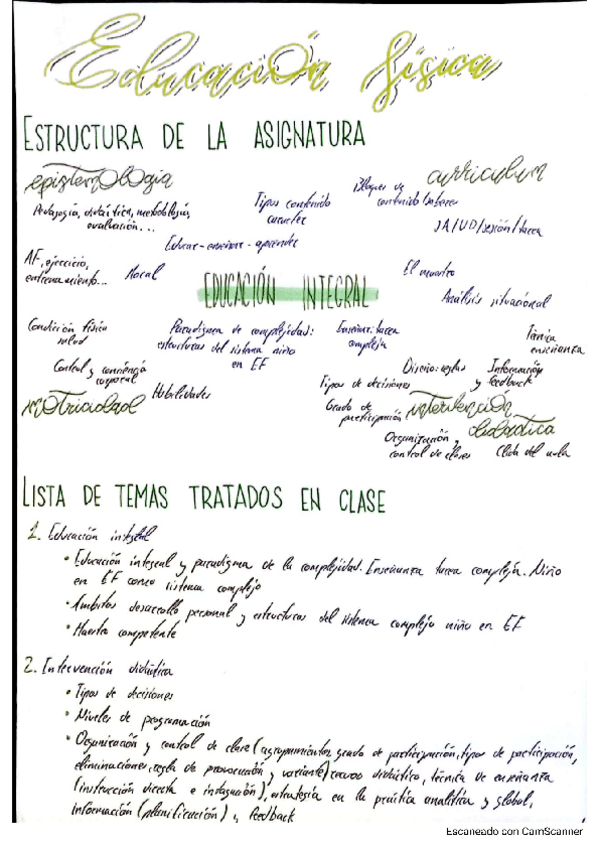 Educación física
ESTRUCTURA DE LA ASIGNATURA
epistemología
curriculum
Pedagogía, didáctica, metodología,
evaluación...
Tipos contenido
carácter
Bloques de
contenido/saberes
SA/UD/sesión/tarea
Educar-enseñar-aprender
AF, ejercicio,
entrenamiento...
Moral
El maestro
EDUCACIÓN INTEGRAL
Análisis situacional
Condición física
salud
Paradigma de complejidad:
estructuras del sistema niño
en EF
Enseñanza: tarea
compleja
Técnica
enseñanza
Control y conciencia
corporal
Diseño: reglas
Información
y feedback
Tipos de decisiones
motricidad
Habilidades
Grado de
participación
intervención
didáctica
Organización y
control de clases
Clida del aula
LISTA DE TEMAS TRATADOS EN CLASE
1. Educación integral
• Educación integral y paradigma de la complejidad. Enseñanza tarea compleja. Niño
en EF como sistema complejo
• Ámbitos desarrollo personal y estructuras del sistema complejo niño en EF
• Maestro competente
2. Intervención didáctica
• Tipos de decisiones
• Niveles de programación
• Organización y control de clase (agrupamientos, grado de participación, tipos de participación,
eliminaciones, regla de provocación y variante) recurso didáctico, técnica de enseñanza
(instrucción directa e indagación), estrategia en la práctica analítica y global,
información (planificación) y feedback
Escaneado con CamScanner